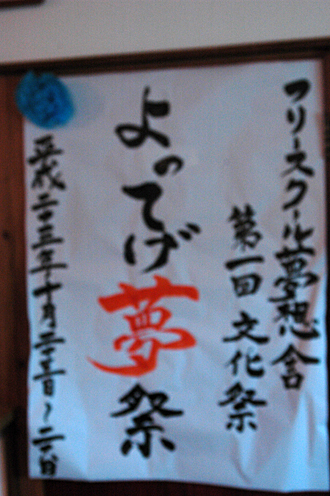 フリースクール夢想舎
第一回 文化祭
よってげ夢祭
平成二十三年十月二十二日～二十三日